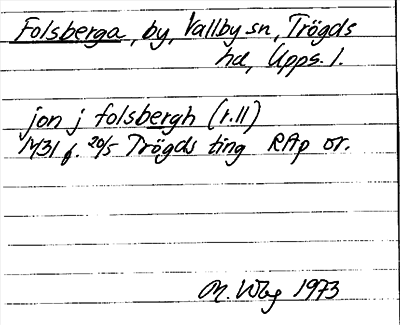 Folsberga, by, Vallby sn, Trögds
hd, Upps. l.
jon j folsbergh (r.11)
1431 f. 20/5 Trögds ting RAp or.
M. Wbg 1973